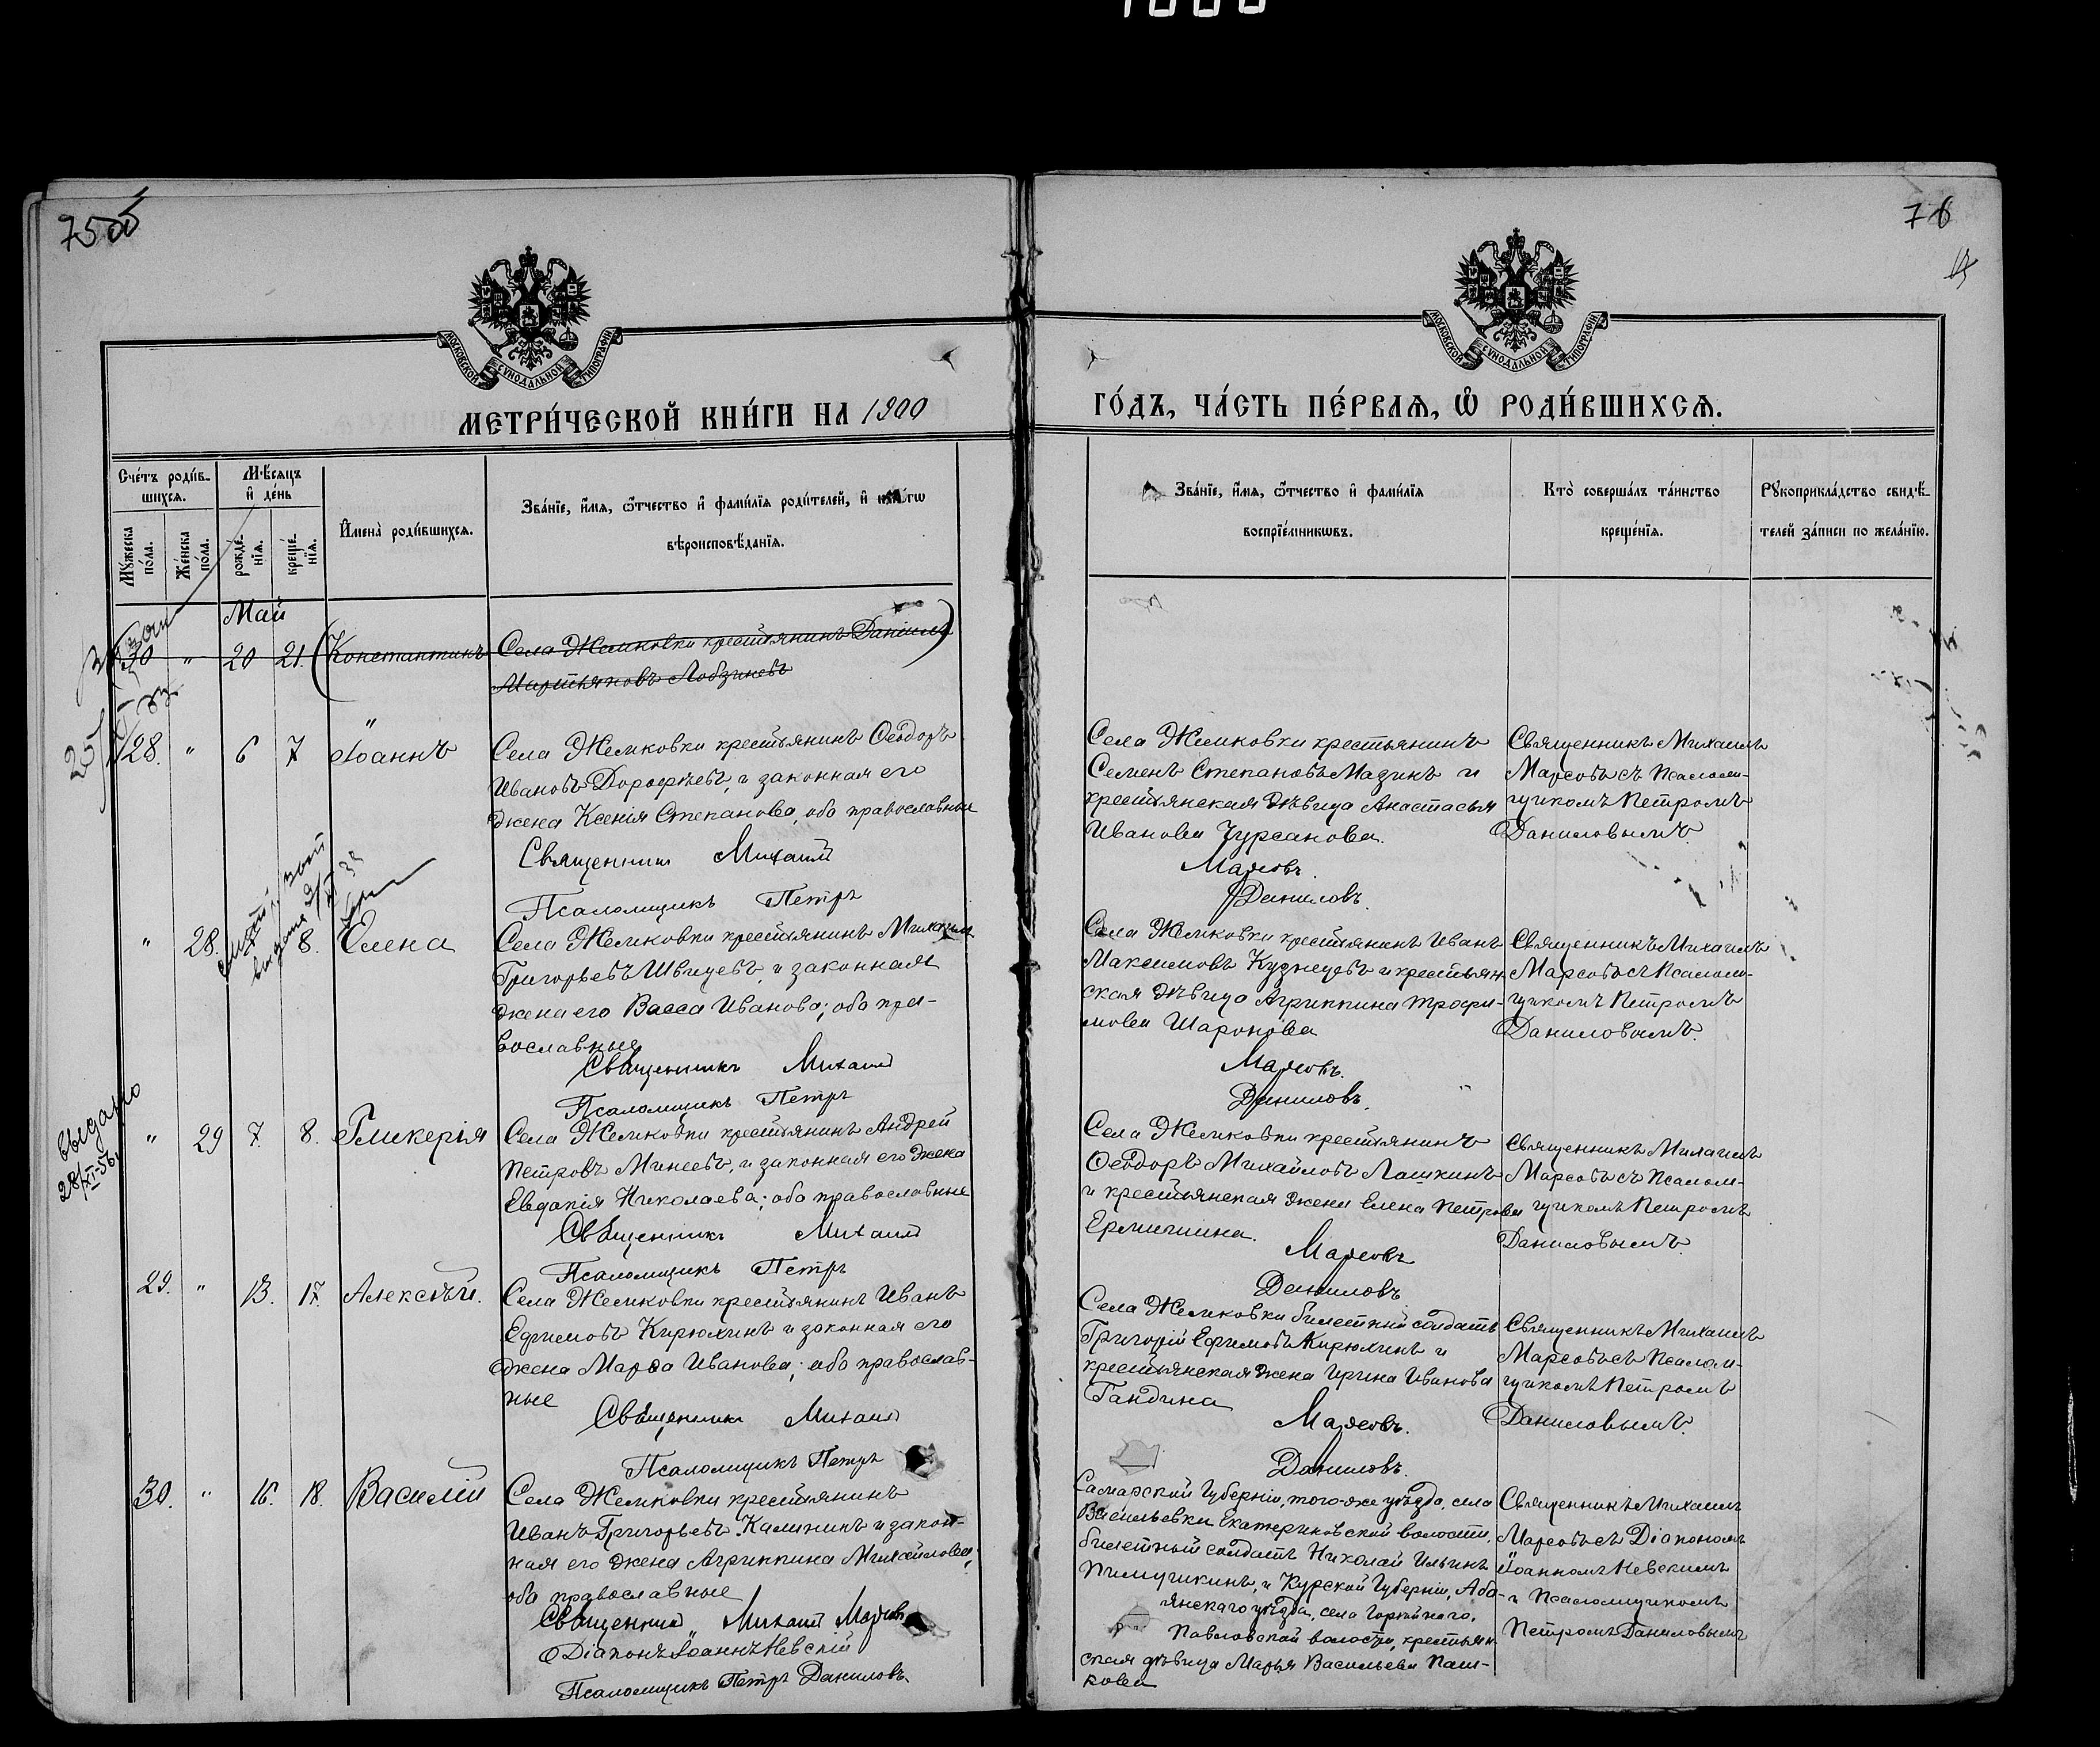 75 об
76
МОСКОВСКОЙ СѴНОДАЛЬНОЙ ТИПОГРАФІИ
МОСКОВСКОЙ СѴНОДАЛЬНОЙ ТИПОГРАФІИ
МЕТРИ́ЧЕСКОЙ КНИ́ГИ НА 1900
ГО́ДЪ, ЧА́СТЬ ПЕ́РВАѦ, Ѽ РОДИ́ВШИХСѦ.
Сче́тъ роди́в-
шихсѧ.
Мѣ́сѧцъ
и҆ де́нь
Мꙋ́жеска
по́ла.
Же́нска
по́ла.
рожде́-
нїѧ.
креще́-
нїѧ.
И҆мена̀ роди́вшихсѧ.
Зва́нїе, и҆́мѧ, ѻ҆́тчество и҆ фами́лїѧ роди́телей, и҆
вѣроисповѣ́данїѧ.
Зва́нїе, и҆́мѧ, ѻ҆́тчество и҆ фами́лїѧ
воспрїе́мникѡвъ.
Кто̀ соверша́лъ та́инство
креще́нїѧ.
Рꙋкоприкла́дство свидѣ́-
телей за́писи по жела́нїю.
Май
30 " 20 21. (Константинъ Села Жемковки крестьянинъ Даніилъ)
Мартьяновъ Лобзиневъ
"
28. " 6 7 Іоаннъ Села Жемковки крестьянинъ Ѳеодоръ
Ивановъ Дорофѣевъ, и законная его
жена Ксенія Степанова, оба православные
Священникъ Михаилъ
Псаломщикъ Петръ
Села Жемковки крестьянинъ
Семенъ Степановъ Мазинъ и
крестьянская дѣвица Анастасья
Иванова Чурсанова.
Марсовъ.
Даниловъ.
Священникъ Михаилъ
Марсовъ съ Псалом-
щикомъ Петромъ
Даниловымъ.
" 28. 8. Елена Села Жемковки крестьянинъ Михаилъ
Григорьевъ Швецевъ, и законная
жена его Васса Иванова; оба пра-
вославные
Священникъ Михаилъ
Псаломщикъ Петръ
Села Жемковки крестьянинъ Иванъ
Максимовъ Кузнецевъ и крестьян-
ская дѣвица Агриппина Трофи-
мова Шаронова
Марсовъ.
Даниловъ.
Священникъ Михаилъ
Марсовъ съ Псалом-
щикомъ Петромъ
Даниловымъ.
выдано
28/XI-56.
" 29 7. 8. Гликерія Села Жемковки крестьянинъ Андрей
Петровъ Минеевъ, и законная его жена
Евдокія Николаева; оба православные
Священникъ Михаилъ
Псаломщикъ Петръ
Села Жемковки крестьянинъ
Ѳеодоръ Михайловъ Лашкинъ
и крестьянская жена Елена Петрова
Ермишина.
Марсовъ
Даниловъ
Священникъ Михаилъ
Марсовъ съ Псалом-
щикомъ Петромъ
Даниловымъ.
29. " 13. 17. Алексѣй. Села Жемковки крестьянинъ Иванъ
Ефимовъ Кирюхинъ и законная его
жена Марѳа Иванова; оба православ-
ные
Священникъ Михаилъ
Псаломщикъ Петръ
Села Жемковки билетный солдатъ
Григорій Ефимовъ Кирюхинъ и
крестьянская жена Ирина Иванова
Гандина
Марсовъ.
Даниловъ.
Священникъ Михаилъ
Марсовъ съ Псалом-
щикомъ Петромъ
Даниловымъ.
30. " 16. 18. Василій Села Жемковки крестьянинъ
Иванъ Григорьевъ Калининъ и закон-
ная его жена Агриппина Михайлова;
оба православные
Священникъ Михаилъ Марсовъ
Діаконъ Іоаннъ Невскій
Псаломщикъ Петръ Даниловъ.
Самарской Губерніи, того-же уѣзда, села
Васильевки Екатериновской волости,
билетный солдатъ Николай Ильинъ
Пимушкинъ, и Курской Губерніи,
уѣзда, села
Павловской волости, крестьян-
ская дѣвица Марья Васильева Паш-
кова
Священникъ Михаилъ
Марсовъ съ Діакономъ
Іоанномъ Невскимъ
и Псаломщикомъ
Петромъ Даниловымъ